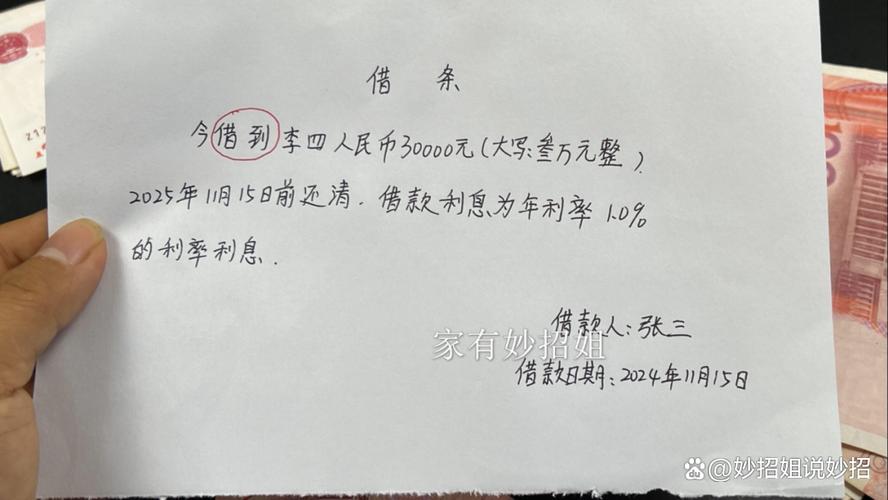 借 条
今借到李四人民币30000元(大写:叁万元整),
2025年11月15日前还清. 借款利息为年利率 1.0%
的利率利息.
借款人:张三
家有妙招姐
借款日期:2024年11月15日
@妙招姐说妙招